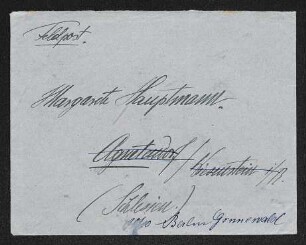 Feldpost.
Margarete Hauptmann.
Agnetendorf /
(Schlesien)
Berlin Grunewald